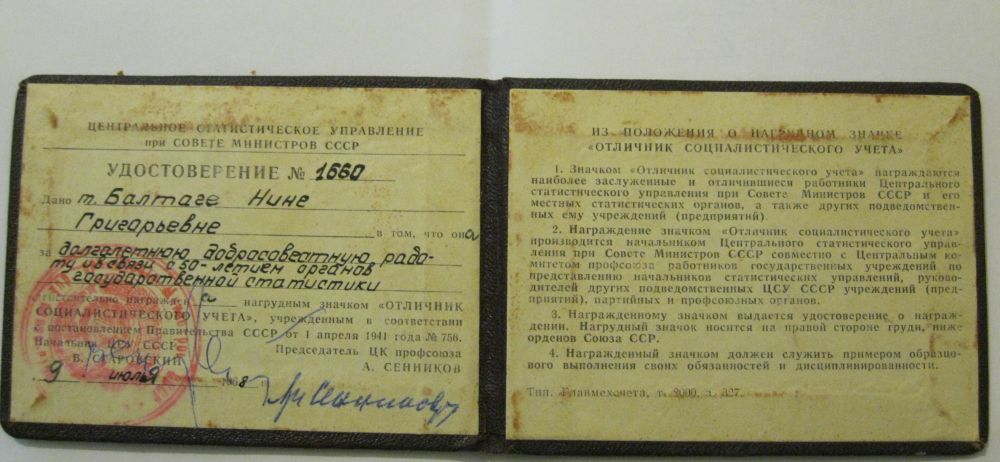 ЦЕНТРАЛЬНОЕ СТАТИСТИЧЕСКОЕ УПРАВЛЕНИЕ
при СОВЕТЕ МИНИСТРОВ СССР
УДОСТОВЕРЕНИЕ № 1660
Дано т. Балтаге Нине
Григарьевне в том, что она
за долголетнюю добрасовестную рабо-
ту и в связи с 50-летием органов
государственной статистики
награжден а нагрудным значком «ОТЛИЧНИК
СОЦИАЛИСТИЧЕСКОГО УЧЕТА», учрежденным в соответствии
с постановлением Правительства СССР от 1 апреля 1941 года № 756.
Начальник ЦСУ СССР
В. СТАРОВСКИЙ
Председатель ЦК профсоюза
А. СЕННИКОВ
9 июля 1968 г.
ИЗ ПОЛОЖЕНИЯ О НАГРУДНОМ ЗНАЧКЕ
«ОТЛИЧНИК СОЦИАЛИСТИЧЕСКОГО УЧЕТА»
1. Значком «Отличник социалистического учета» награждаются
наиболее заслуженные и отличившиеся работники Центрального
статистического управления при Совете Министров СССР и его
местных статистических органов, а также других подведомствен-
ных ему учреждений (предприятий).
2. Награждение значком «Отличник социалистического учета»
производится начальником Центрального статистического управ-
ления при Совете Министров СССР совместно с Центральным ко-
митетом профсоюза работников государственных учреждений по
представлению начальников статистических управлений, руково-
дителей других подведомственных ЦСУ СССР учреждений (пред-
приятий), партийных и профсоюзных органов.
3. Награжденному значком выдается удостоверение о награж-
дении. Нагрудный значок носится на правой стороне груди, ниже
орденов Союза ССР.
4. Награжденный значком должен служить примером образцо-
вого выполнения своих обязанностей и дисциплинированности.
Тип. Главмехсчета, т. 2000 з. 327.